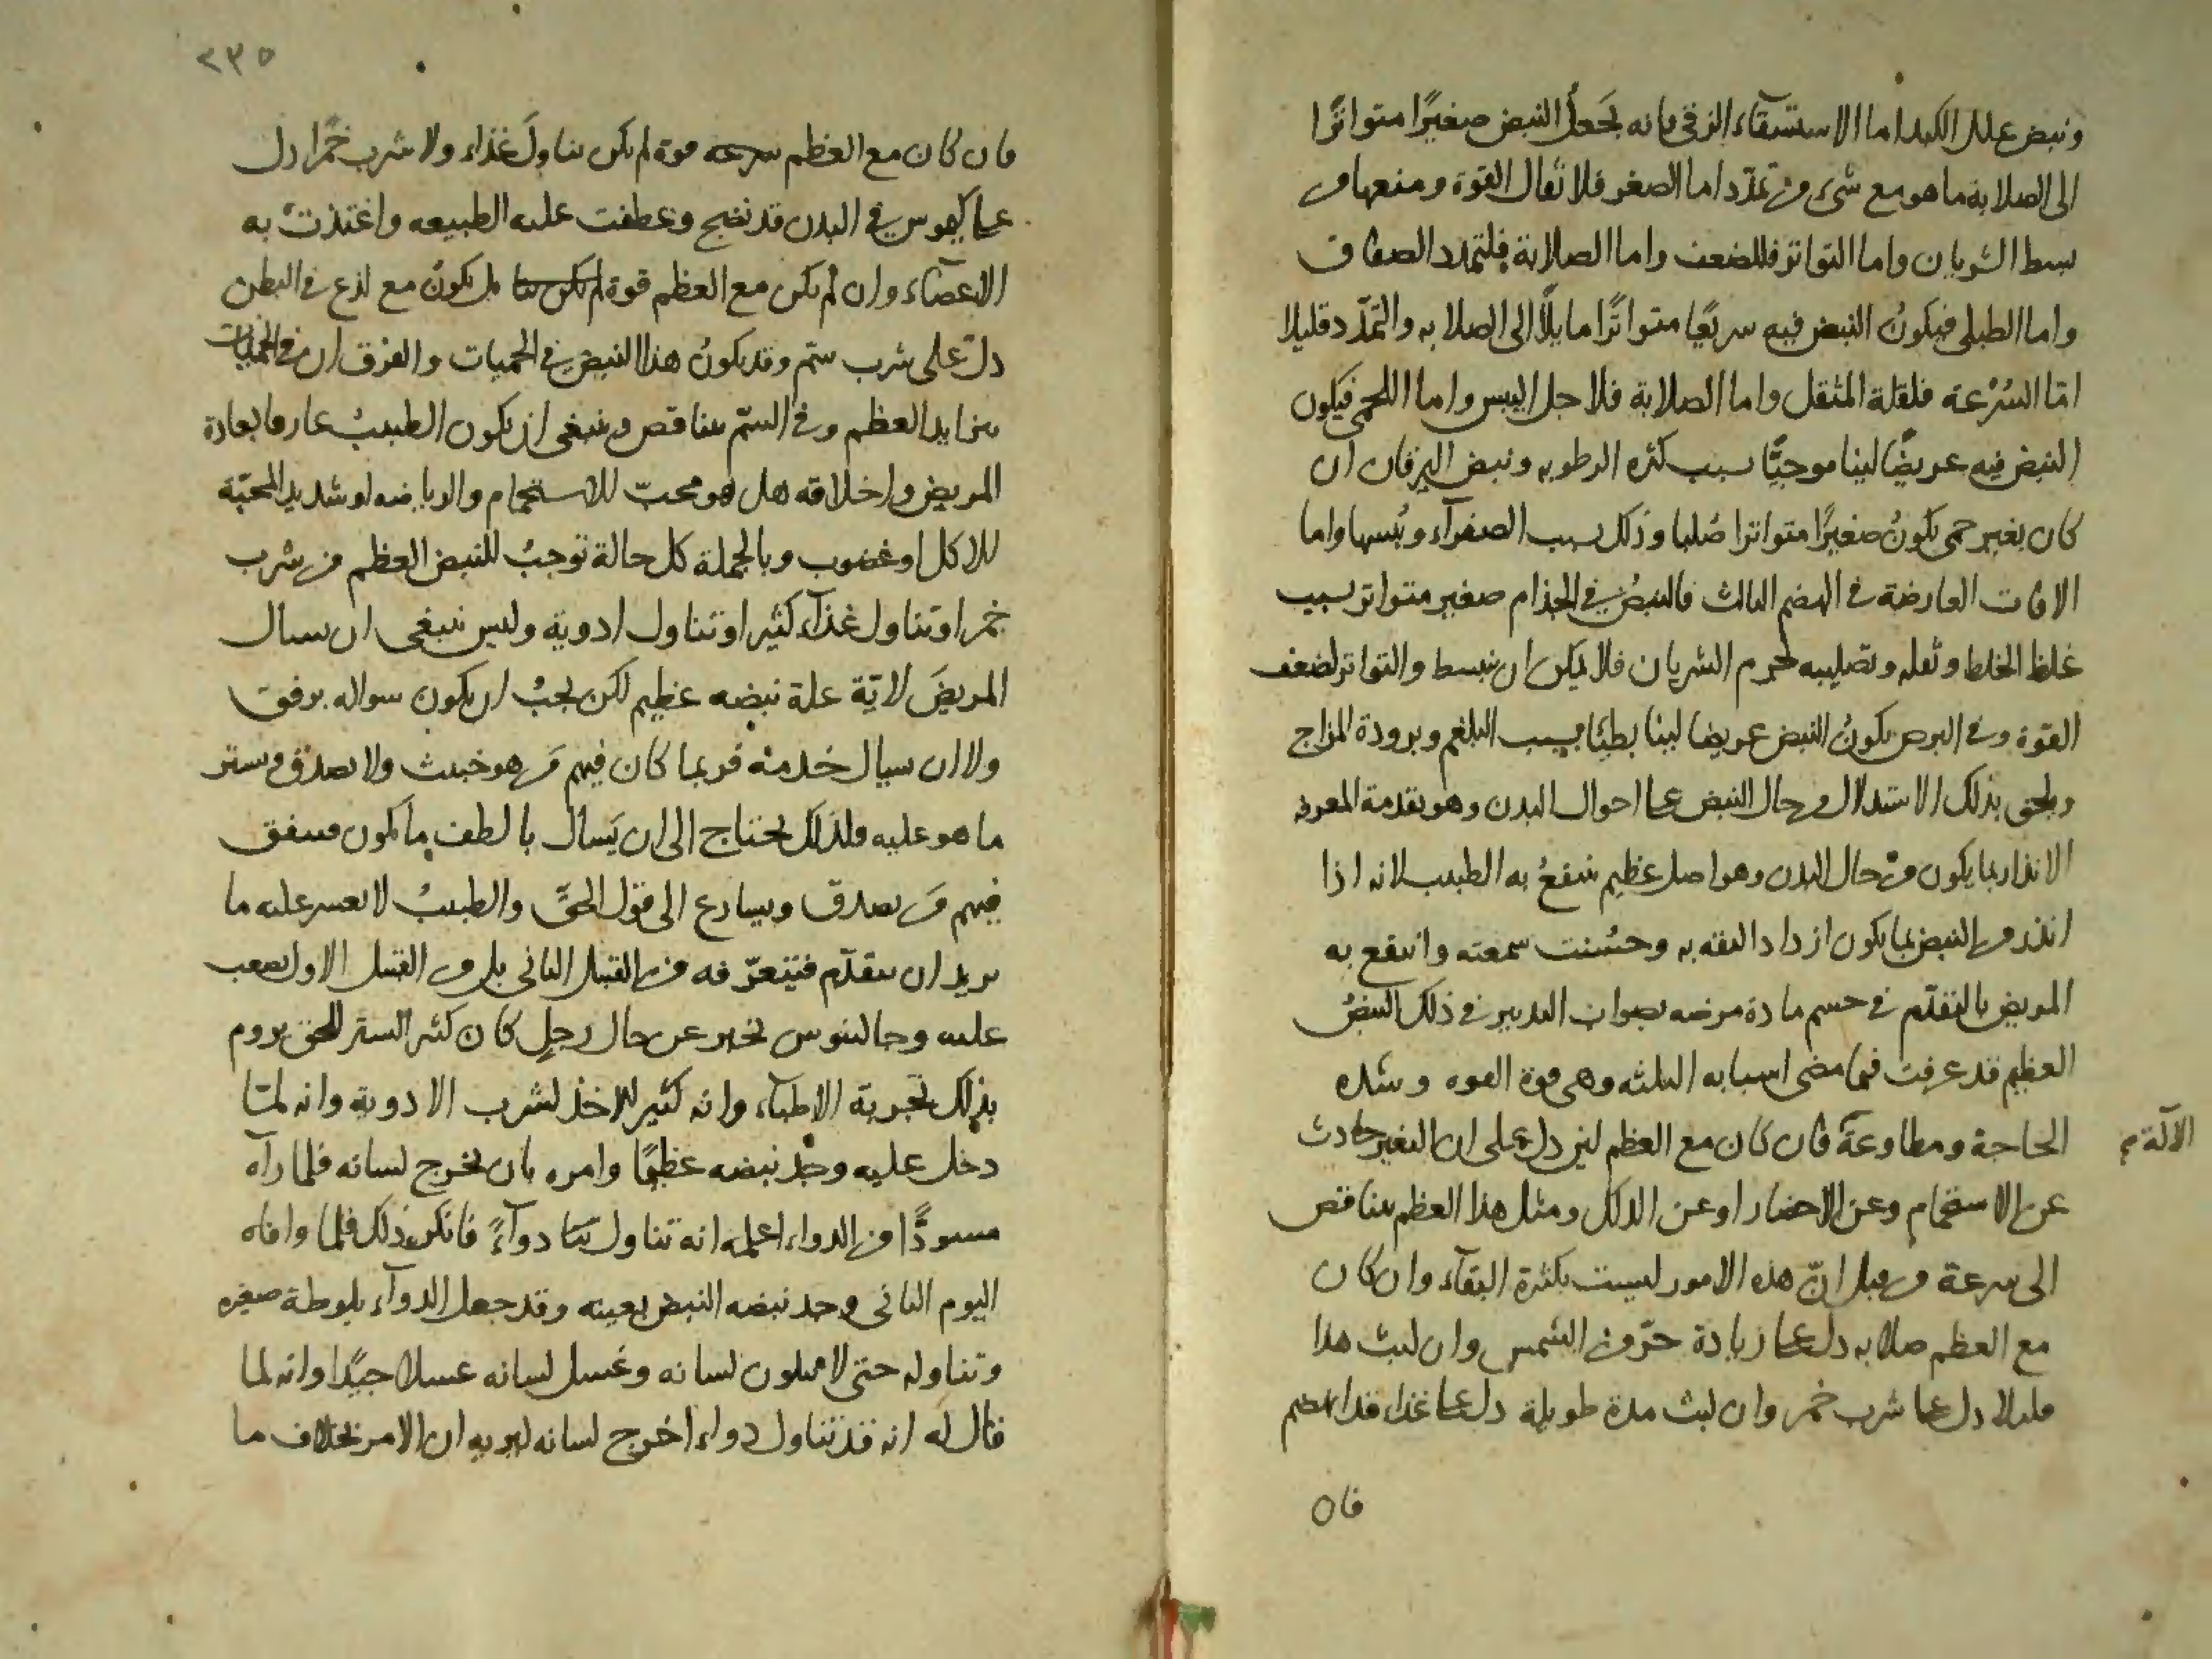 ونبض علل الكبد اما الاستسقاء الزقى فانه يجعل النبض صغيرًا متواترًا
الى الصلابة ما هو مع شىء من تمدّد اما الصغر فلاثقال القوة ومنعها من
بسط الشريان واما التواتر فللضعف واما الصلابة فلتمدد الصفاق
واما الطبلى فيكونُ النبض فيه سريعًا متواترًا مايلًا الى الصلابه والتمدّد قليلا
امّا السُرْعة فلقلة المثقل واما الصلابة فلاجل اليبس واما اللحمى فيكون
النبض فيه عريضًا لينا موجيًّا بسبب كثره الرطوبه ونبض اليرقان ان
كان بغير حمى يكونُ صغيرًا متواترا صُلبا وذلك بسبب الصفرآء ويُبسها واما
الافات العارضة فى الهضم الثالث فالنبضُ فى الجذام صغير متواتر بسبب
غلظ الخلط وثقله وتصليبه لجرم الشريان فلا يمكن ان ينبسط والتواتر لضعف
القوة وفى البرص يكونُ النبض عريضا لينا بطيًا بسبب البلغم وبرودة المزاج
ويلحق بذلك الاستدلال من حال النبض على احوال البدن وهو تقدمة المعرفه
الانذار بما يكون من حال البدن وهو اصل عظيم ينتفعُ به الطبيب لانه اذا
انذر من النبض بما يكون ازداد الثقه به وحسُنت سمعته وانتفع به
المريض بالتقدّم فى حسم مادة مرضه بصواب التدبير فى ذلك النبضُ
العظيم قد عرفت فيما مضى اسبابه الثلثه وهى قوة القوه وشده
الحاجة ومطاوعة فان كان مع العظم لين دل على ان التغير حادث
الآلة
عن الاستحمام وعن الاحضار او عن الدلك ومثل هذا العظم يتناقص
الى سرعة من قبل انّ هذه الامور ليست بكثرة البقآء وان كان
مع العظم صلابه دل على زيادة حرّ من الشمس وان لبث هذا
قليلا دل على شرب خمر وان لبث مدة طويلة دل على غذاء قد انهضم
فان
٢٣٥
فان كان مع العظم سرعه قوة لم يكن تناولَ غذاء ولا شرب خمرًا دل
على كيموس فى البدن قد نضج وعطفت عليه الطبيعه واغتذت به
الاعضآء وان لم يكن مع العظم قوة لم يكن بل يكونُ مع لذع فى البطن
دل على شرب سمّ وقد يكونُ هذا النبض فى الحميات والفرق ان فى الحميات
يتزايد العظم وفى السمّ يتناقص وينبغى ان يكون الطبيبُ عارفا بعادة
المريض واخلاقه هل هو محبّ للاستحمام والرياضه او شديد المحبّة
للاكل او غضوب وبالجملة كل حالة توجبُ للنبض العظم من شرب
خمر او تناول غذآء كثير او تناول ادوية وليس ينبغى ان يسال
المريضَ لايّة علة نبضه عظيم لكن يجبُ ان يكون سواله برفق
ولا ان سيال خدمه فربما كان فيهم من هو خبيث ولا يصدق ويستر
ما هو عليه ولذلك يحتاج الى ان يَسال بالطف ما يكون فيتفق
فيهم من يصدق ويسارع الى قول الحقّ والطبيبُ لا يعسر عليه ما
يريد ان يتقدّم فيتعرّفه من القبل الثانى بل من القبل الاول يصعب
عليه وجالينوس يخبر عن حال رجلٍ كان كثير الستر للحق يروم
بذلك تجربة الاطبآء وانه كثير للاخذ لشرب الادوية وانه لمّا
دخل عليه وجد نبضه عظيمًا وامره بان يخرج لسانه فلما رآه
مسودًّا من الدواء اعلمه انه تناول دوآءً فانكر ذلك فلما وافاه
اليوم الثانى وجد نبضه النبض بعينه وقد جعل الدوآء بلوطة صغيره
وتناوله حتى لا يتلون لسانه وغسل لسانه غسلا جيّدا وانه لما
قال له انه قد تناول دواء اخرج لسانه ليريه ان الامر بخلاف ما